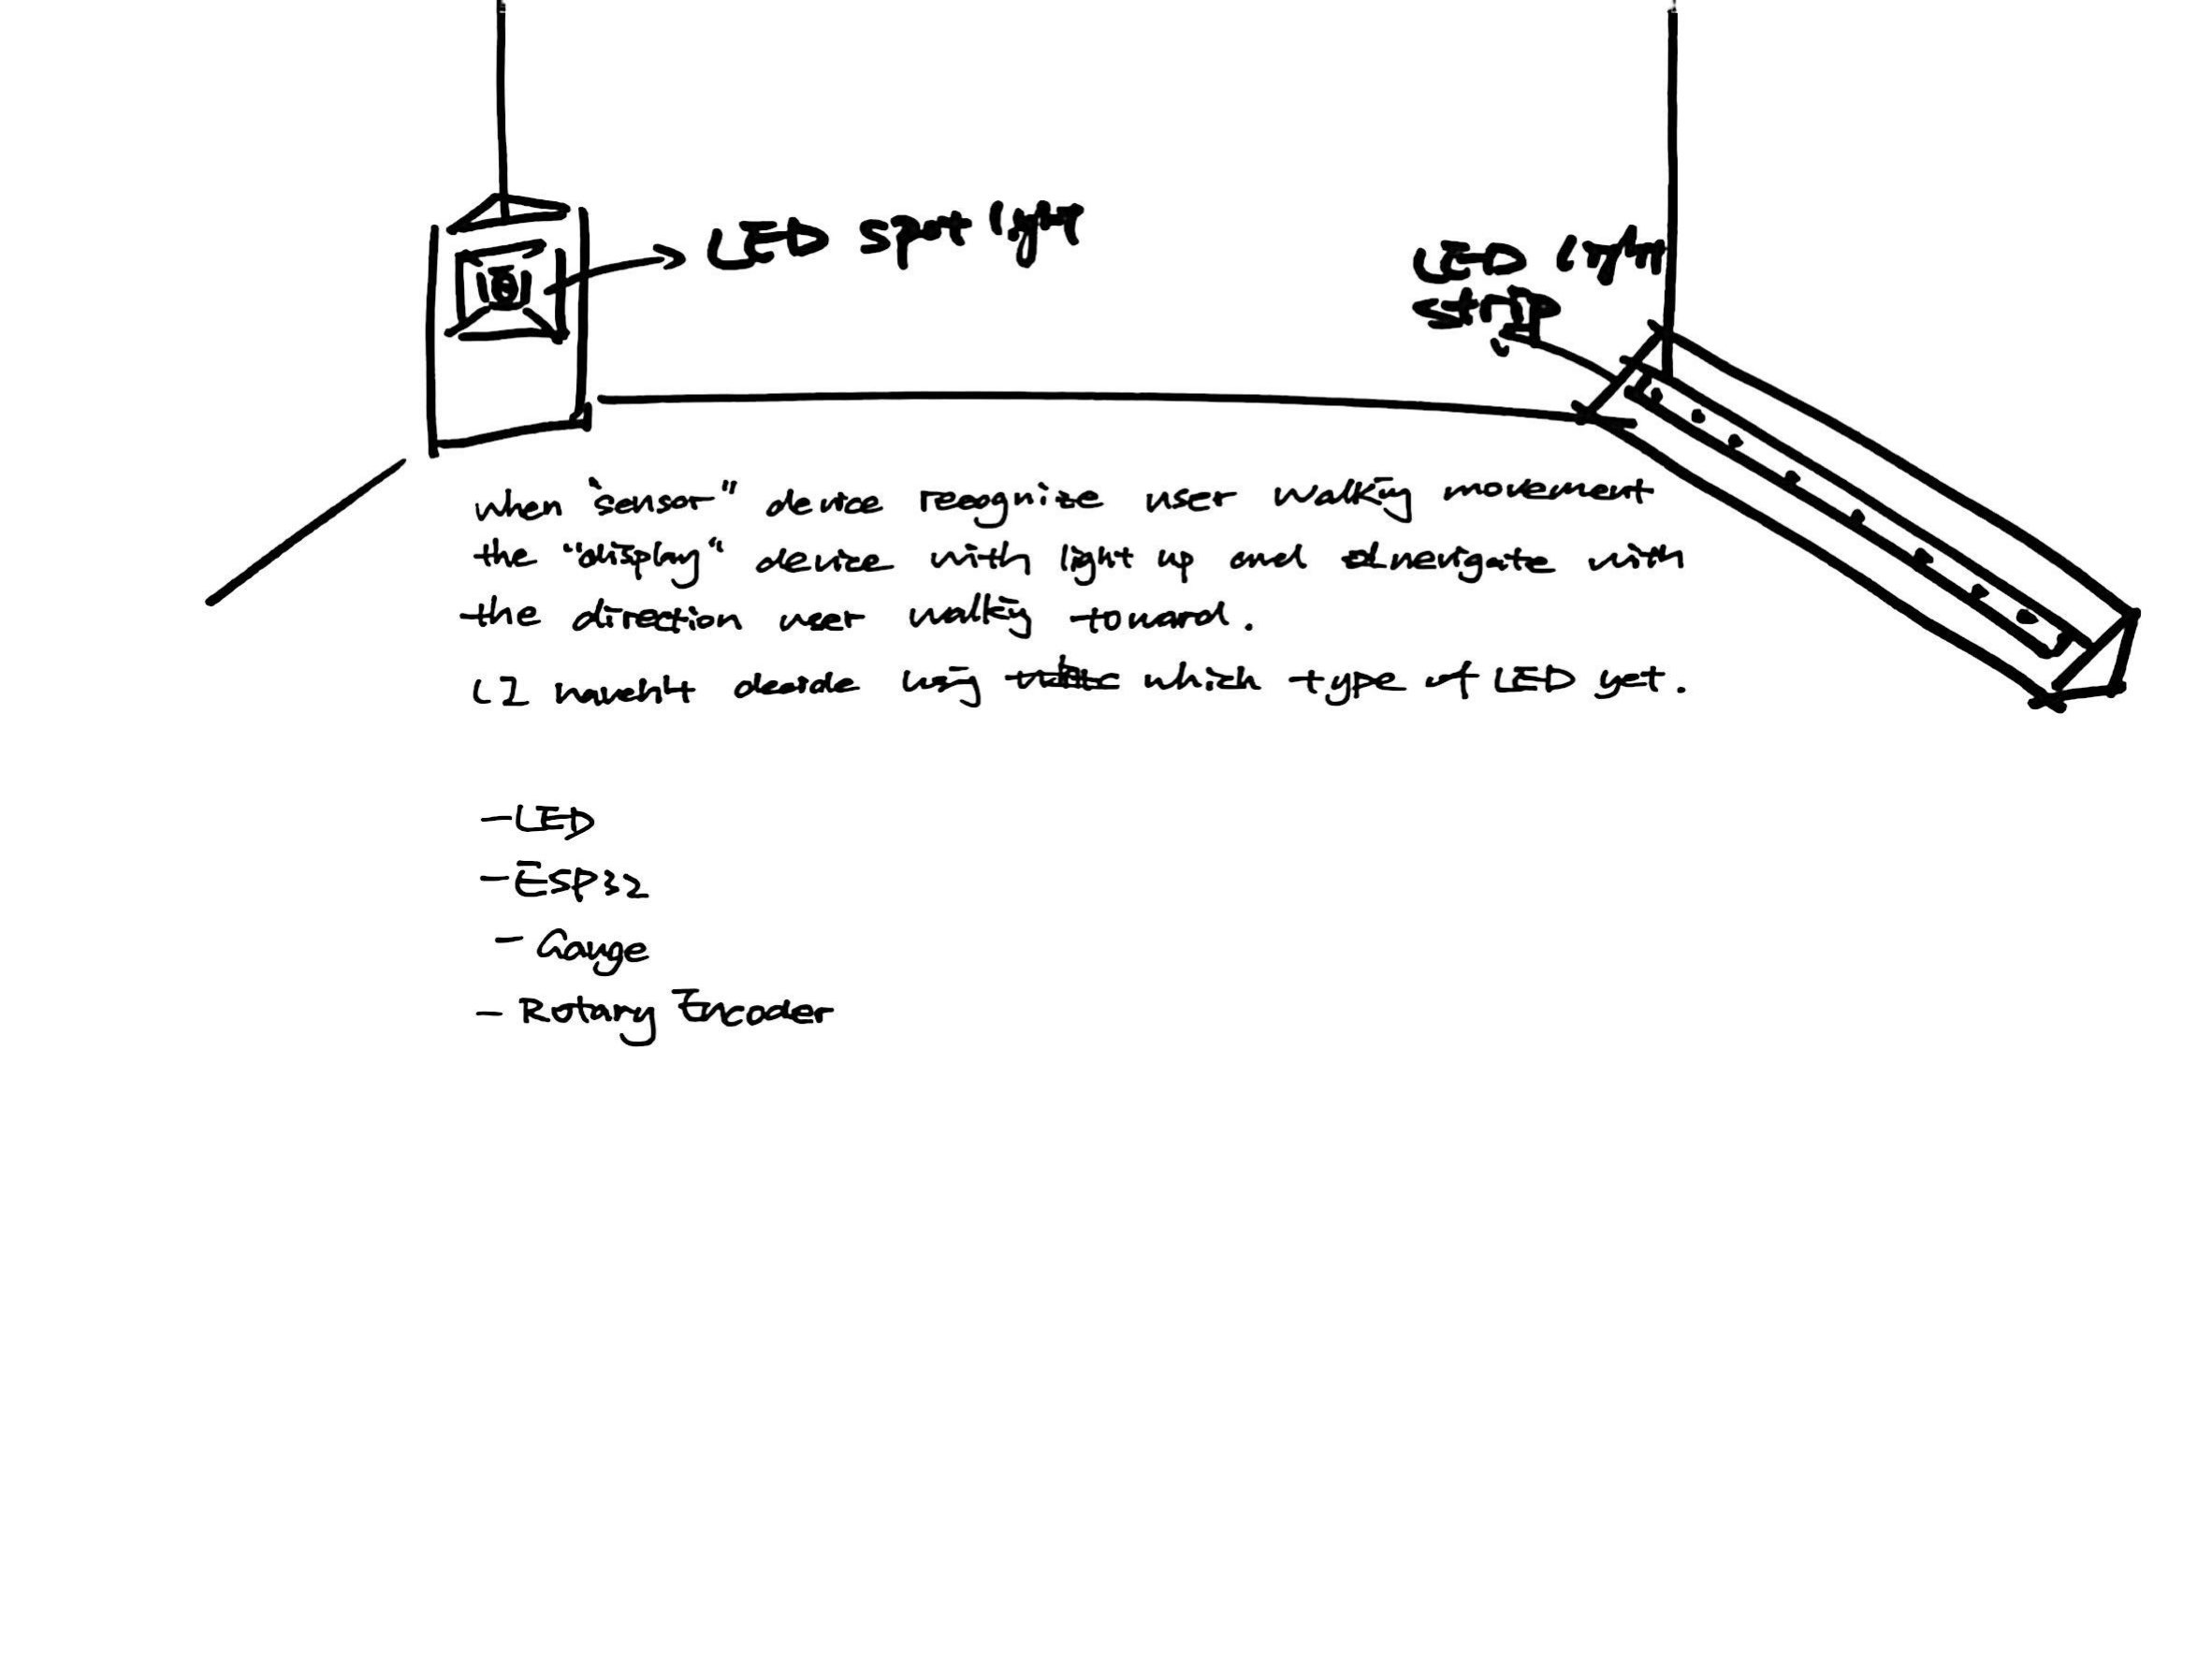 LED spot light
LED light
strip
when "sensor" device recognize user walking movement
the "display" device with light up and nevigate with
the direction user walking toward.
( I haven't decide using which type of LED yet.
- LED
- ESP32
- Gauge
- Rotary Encoder